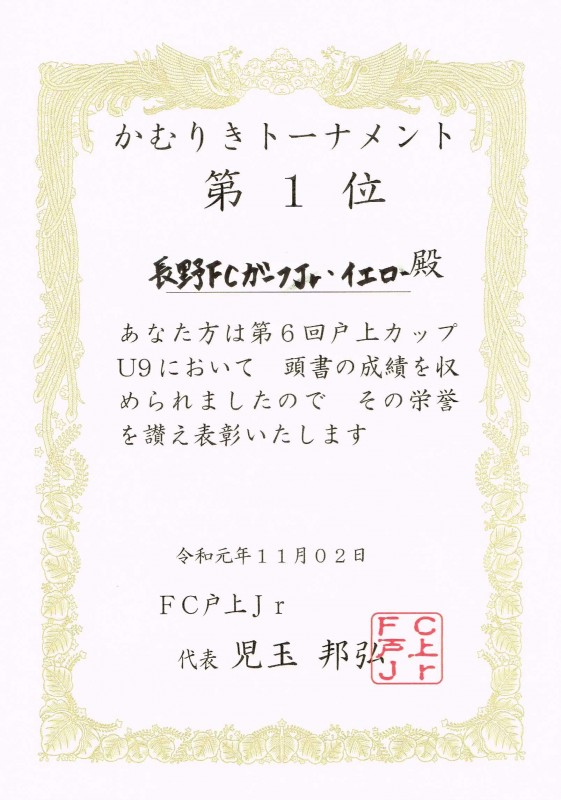 かむりきトーナメント
第 1 位
長野FCガーフJr・イエロー殿
あなた方は第6回戸上カップ
U9において　頭書の成績を収
められましたので　その栄誉
を讃え表彰いたします
令和元年11月02日
FC戸上Jr
代表 児玉 邦弘
FC
戸上
Jr